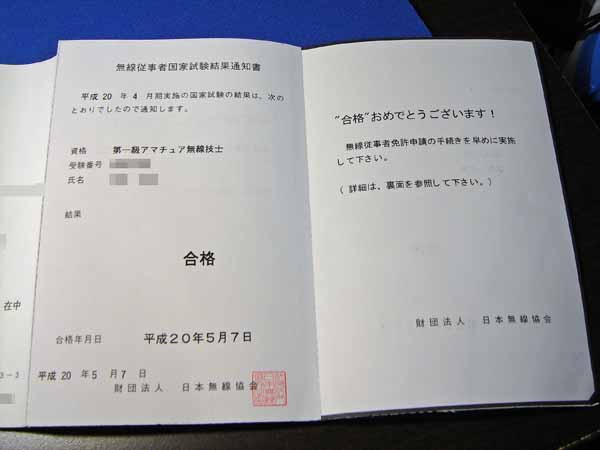 無線従事者国家試験結果通知書
平成 20 年 4 月期実施の国家試験の結果は、次の
とおりでしたので通知します。
資格 第一級アマチュア無線技士
受験番号
氏名
結果
合格
合格年月日 平成20年5月7日
平成 20 年 5 月 7 日
財団法人 日本無線協会
"合格"おめでとうございます!
無線従事者免許申請の手続きを早めに実施
して下さい。
(詳細は、裏面を参照して下さい。)
財団法人 日本無線協会
在中
3-3